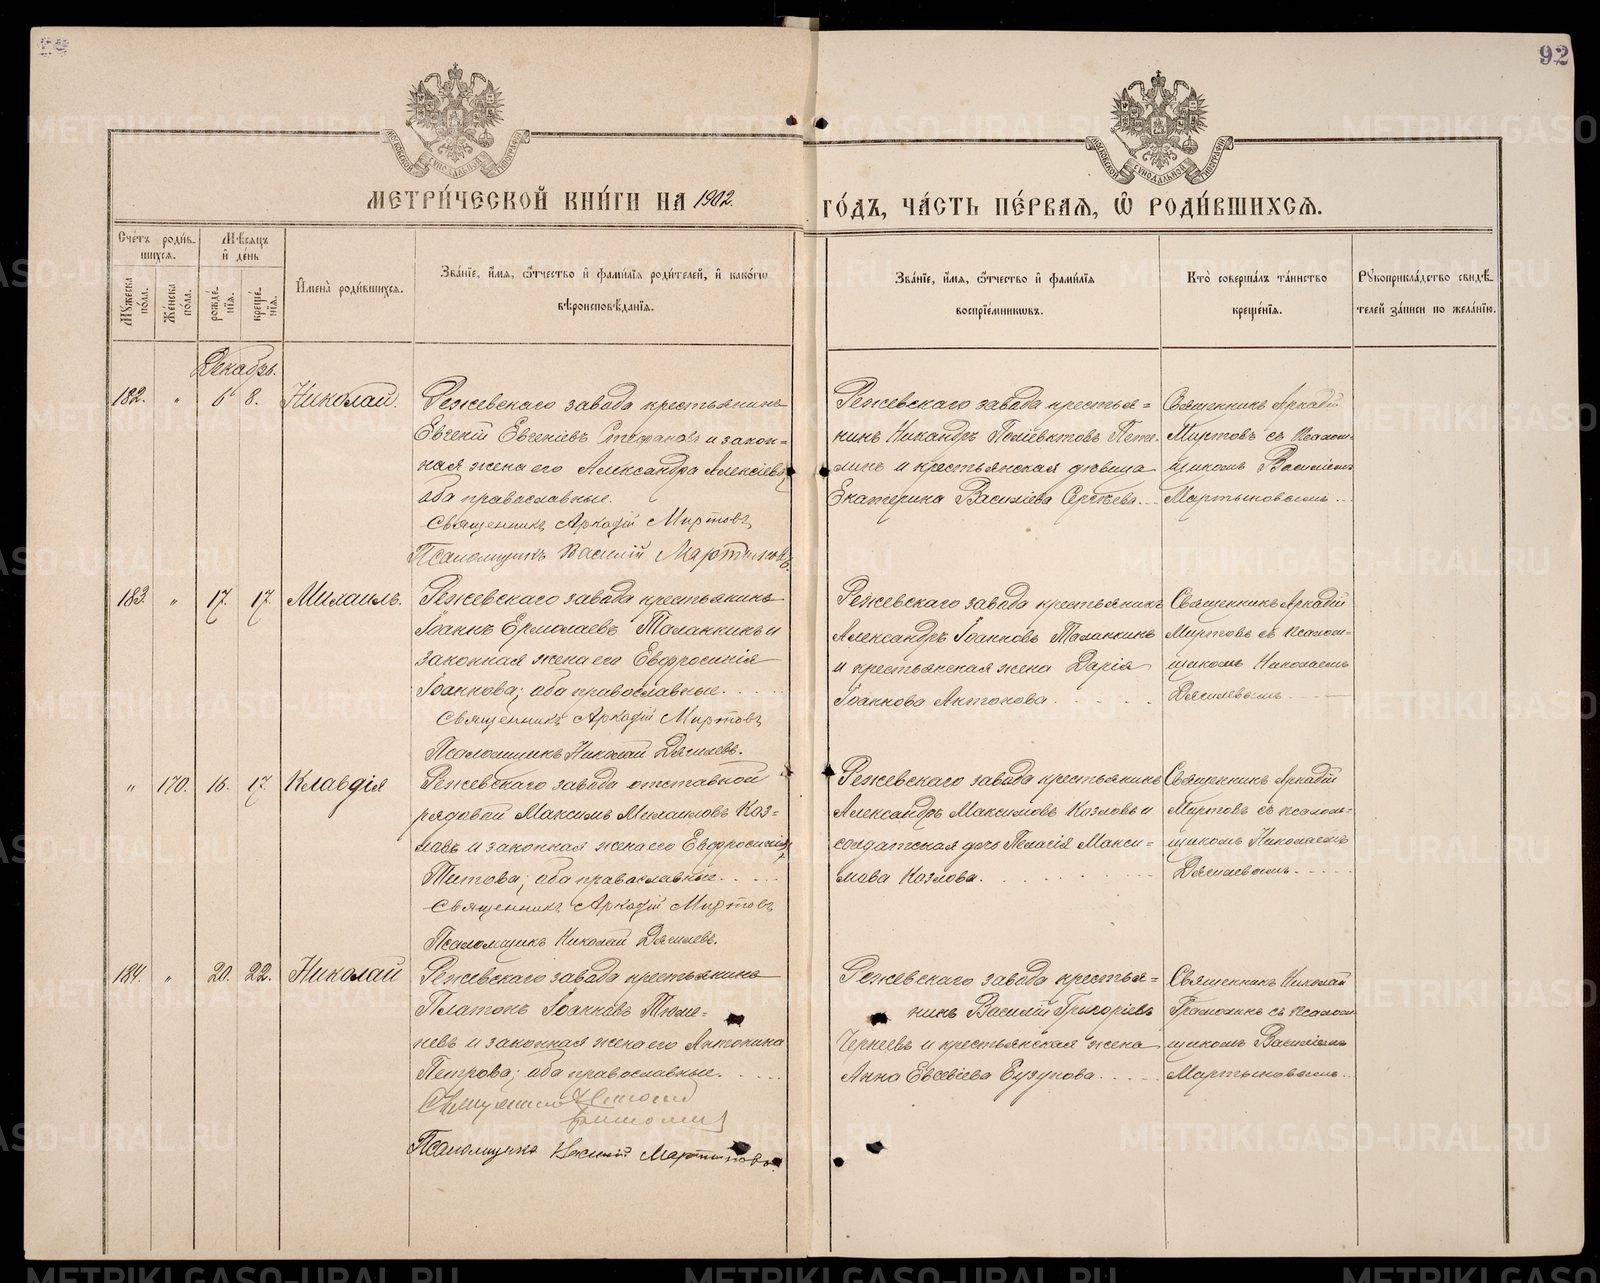 92
МОСКОВСКОЙ СѴНОДАЛЬНОЙ ТИПОГРАФІИ
МОСКОВСКОЙ СѴНОДАЛЬНОЙ ТИПОГРАФІИ
МЕТРИ́ЧЕСКОЙ КНИ́ГИ НА 1902.
ГО́ДЪ, ЧА́СТЬ ПЕ́РВАѦ, Ѽ РОДИ́ВШИХСѦ.
Сче́тъ роди́вшихсѧ.
Мꙋжеска по́ла.
Же́нска по́ла.
Мѣ́сѧцъ и҆ де́нь
рожде́нїѧ.
креще́нїѧ.
И҆мена̀ роди́вшихсѧ.
Зва́нїе, и҆́мѧ, ѻ҆́тчество и҆ фами́лїѧ роди́телей, и҆ како́гѡ
вѣроисповѣ́данїѧ.
Зва́нїе, и҆́мѧ, ѻ҆́тчество и҆ фами́лїѧ
воспрїе́мникѡвъ.
Кто̀ соверша́лъ та́инство
креще́нїѧ.
Рꙋкоприкла́дство свидѣ́-
телей за́писи по жела́нїю.
Декабрь.
182. " 6 8. Николай.
Режевскаго завода крестьянинъ
Евгеній Евгеніевъ Стефановъ и закон=
ная жена его Александра Алексіева,
оба православные.
Священникъ Аркадій Миртовъ
Псаломщикъ Василій Мартыновъ.
Режевскаго завода крестья=
нинъ Никандръ Поліевктовъ
и крестьянская дѣвица
Екатерина Василіева Сергѣева.
Священникъ Аркадій
Миртовъ съ псалом-
щикомъ Василіемъ
Мартыновымъ.
183. " 17. 17. Михаилъ.
Режевскаго завода крестьянинъ
Іоаннъ Ермолаевъ Таланкинъ и
законная жена его Евфросинія
Іоаннова; оба православные.
Священникъ Аркадій Миртовъ
Псаломщикъ Николай Дягилевъ.
Режевскаго завода крестьянинъ
Александръ Іоанновъ Таланкинъ
и крестьянская жена Дарія
Іоаннова Антонова.
Священникъ Аркадій
Миртовъ съ псалом-
щикомъ Николаемъ
Дягилевымъ.
" 170. 16. 17 Клавдія
Режевскаго завода отставной
рядовой Максимъ Михаиловъ Коз=
ловъ и законная жена его Евфросинія
Титова; оба православные.
Священникъ Аркадій Миртовъ
Псаломщикъ Николай Дягилевъ.
Режевскаго завода крестьянинъ
Александръ Максимовъ Козловъ и
солдатская дочь Пелагія Макси-
мова Козлова.
Священникъ Аркадій
Миртовъ съ псалом-
щикомъ Николаемъ
Дягилевымъ.
184. " 20. 22. Николай
Режевскаго завода крестьянинъ
Платонъ Іоанновъ Тюме-
невъ и законная жена его Антонина
Петрова; оба православные.
Священникъ Николай
Псаломщикъ Василій Мартыновъ.
Режевскаго завода крестья=
нинъ Василій Григоріевъ
Черневъ и крестьянская жена
Анна Евсевіева Бузунова.
Священникъ Николай
съ псалом-
щикомъ Василіемъ
Мартыновымъ.
METRIKI.GASO-URAL.RU